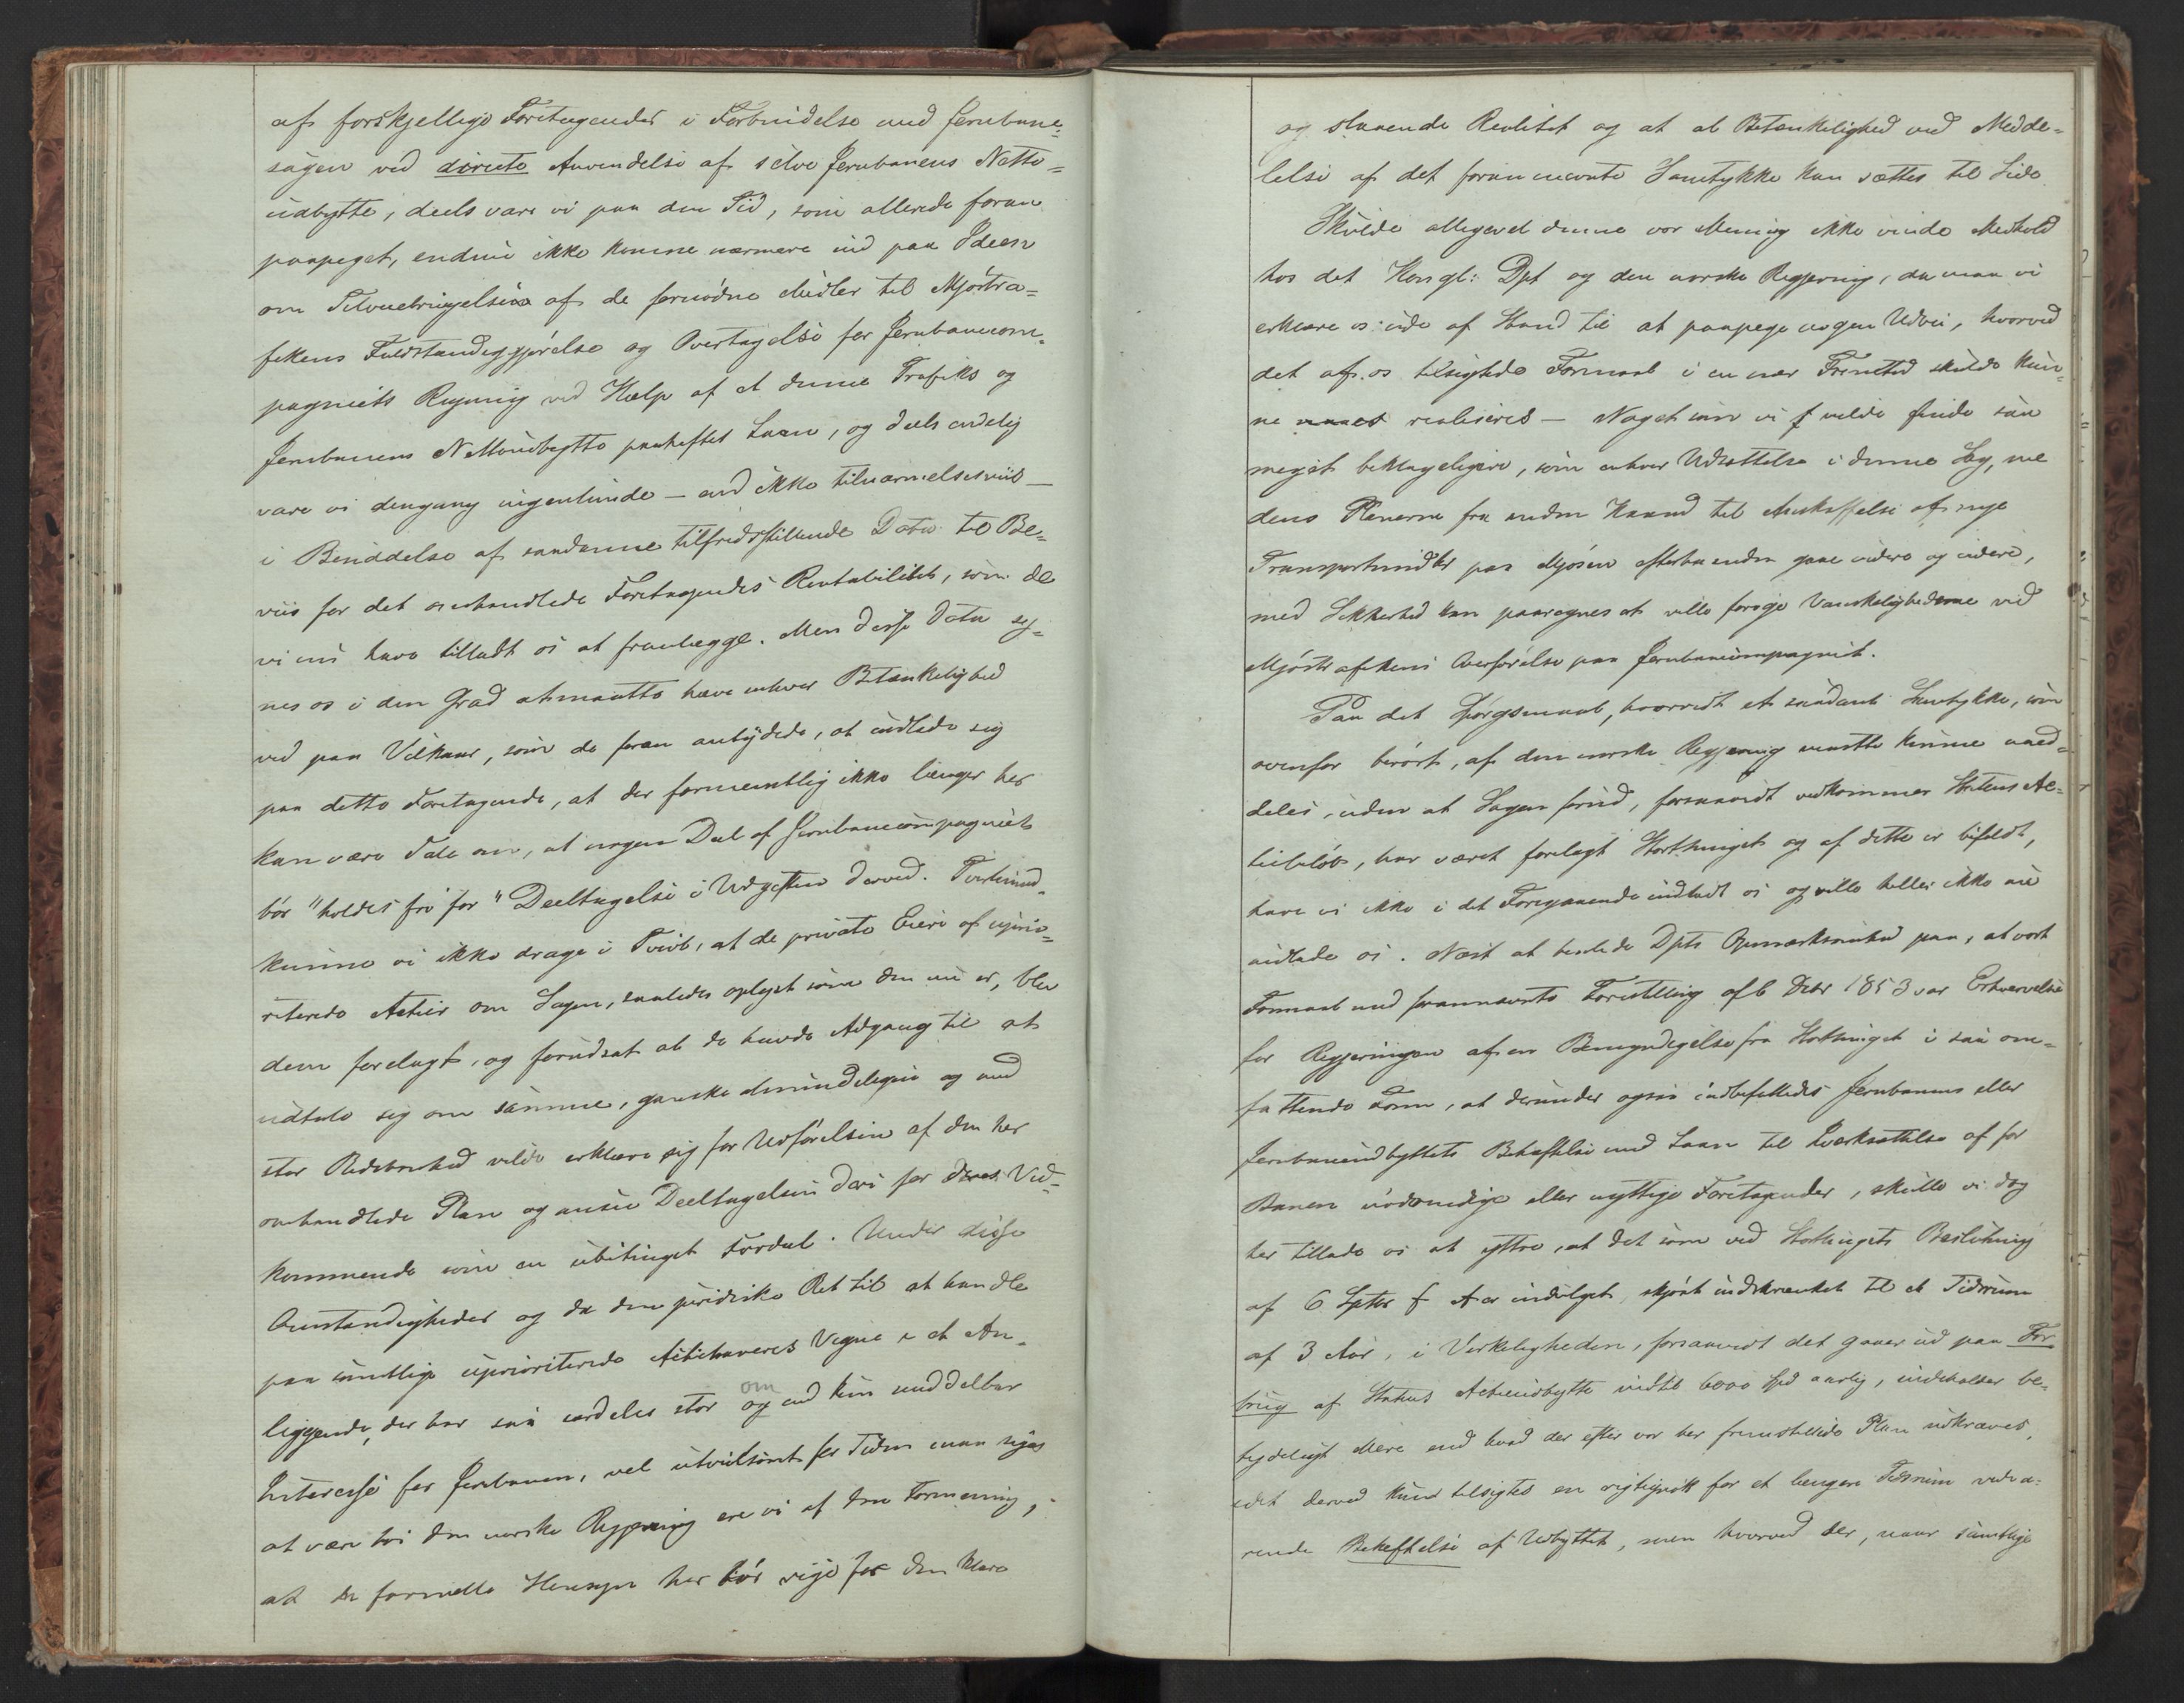 af forskjellige Foretagender i Forbindelse med Jernbane=
sagen ved directe Anvendelse af selve Jernbanens Netto=
udbytte, deels vare vi paa den Tid, som allerede foran
paapeget, endnu ikke komne nærmere ind paa Ideen
om Tilveiebringelsen af de fornødne Midler til Mjøstra=
fikens Fuldstændiggjørelse og Overtagelse for Jernbanecom=
pagniets Regning ved Hælp af et denne Trafiks og
Jernbanens Nettoudbytte paaheftet Laan, og deels endelig
vare vi dengang ingenlunde – end ikke tilnærmelsesviis –
i Besiddelse af saadanne tilfredsstillende Data til Be=
viis for det omhandlede Foretagendes Rentabilitet, som de
vi nu have tilladt os at fremlægge. Men disse Data sy=
nes os i den Grad at maatte hæve enhver Betænkelighed
ved paa Vilkaar, som de foran antydede, at indlade sig
paa dette Foretagende, at der formeentlig ikke længer her
kan være Tale om, at nogen Deel af Jernbanecompagniet
bør "holdes fri for" Deeltagelse i Udgiften derved. Tvertimod
kunne vi ikke drage i Tvivl, at de private Eiere af uprio=
riterede Actier om Sagen, saaledes oplyst som den nu er, blev
dem forelagt, og forudsat at de havde Adgang til at
udtale sig om samme, ganske almindeligen og med
stor Redebonhed vilde erklære sig for Udførelsen af den her
omhandlede Plan og ansee Deeltagelsen deri for deres Ved=
kommende som en ubetinget Fordeel. Under disse
Omstændigheder og da den juridiske Ret til at handle
paa samtlige uprioriterede Actiehaveres Vegne i et An=
liggende, der har saa særdeles stor og om end kun middelbar
Interesse for Jernbanen, vel utvivlsomt for Tiden maa siges
at være hos den norske Regjering ere vi af den Formening,
at de formelle Hensyn her bør vige for den klare
og slaaende Realitet og at al Betænkelighed ved Medde=
lelse af det forannævnte Samtykke kan sættes til Side.
Skulde alligevel denne vor Mening ikke vinde Medhold
hos det Kongl: Dpt og den norske Regjering, da maa vi
erklære os ude af Stand til at paapege nogen Udvei, hvorved
det af os tilsigtede Formaal i en nær Fremtid skulde kun=
ne realiseres – Noget som vi vilde finde saa
meget beklageligere, som enhver Udsættelse i denne Sag, me
dens Planerne fra anden Haand til Anskaffelse af nye
Transportmidler paa Mjøsen efterhaanden gaae videre og videre,
med Sikkerhed kan paaregnes at ville forøge Vanskelighederne ved
Mjøstrafikens Overførelse paa Jernbanecompagniet.
Paa det Spørgsmaal, hvorvidt et saadant Samtykke, som
ovenfor berørt, af den norske Regjering maatte kunne med=
deles, uden at Sagen forud, forsaavidt vedkommer Statens Ac=
tiebeløb, har været forelagt Storthinget og af dette er bifaldt,
have vi ikke i det Foregaaende indladt os og ville heller ikke nu
indlade os. Næst at henlede Dpts Opmærksomhed paa, at vort
Formaal med forannævnte Forestilling af 6 Decbr 1853 var Erhvervelse
for Regjeringen af en Bemyndigelse fra Storthinget i saa om=
fattende Form, at derunder ogsaa indbefattedes Jernbanens eller
Jernbaneudbyttets Behæftelse med Laan til Iværksættelse af for
Banen nødvendige eller nyttige Foretagender, skulle vi dog
her tillade os at yttre, at det som ved Storthingets Beslutning
af 6 Septbr f. A. er indvilget, skjønt indskrænket til et Tidsrum
af 3 Aar, i Virkeligheden, forsaavidt det gaaer ud paa For
brug af Statens Actieudbytte indtil 6000 Spd aarlig, indeholder be=
tydeligt Mere end hvad der efter vor her fremstillede Plan udkræves,
idet derved kun tilsigtes en rigtignok for et længere Tidsrum veda=
rende Behæftelse af Udbyttet, men hvorved der, naar samtlige